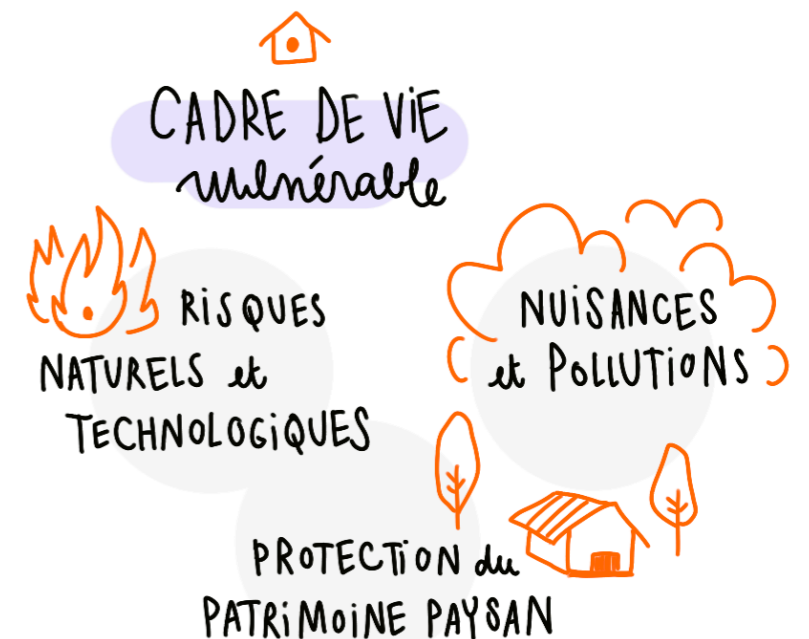 CADRE DE ViE
vulnérable
RiSQUES
NATURELS et
TECHNOLOGiQUES
NUiSANCES
et POLLUTiONS
PROTECTiON du
PATRiMOiNE PAYSAN